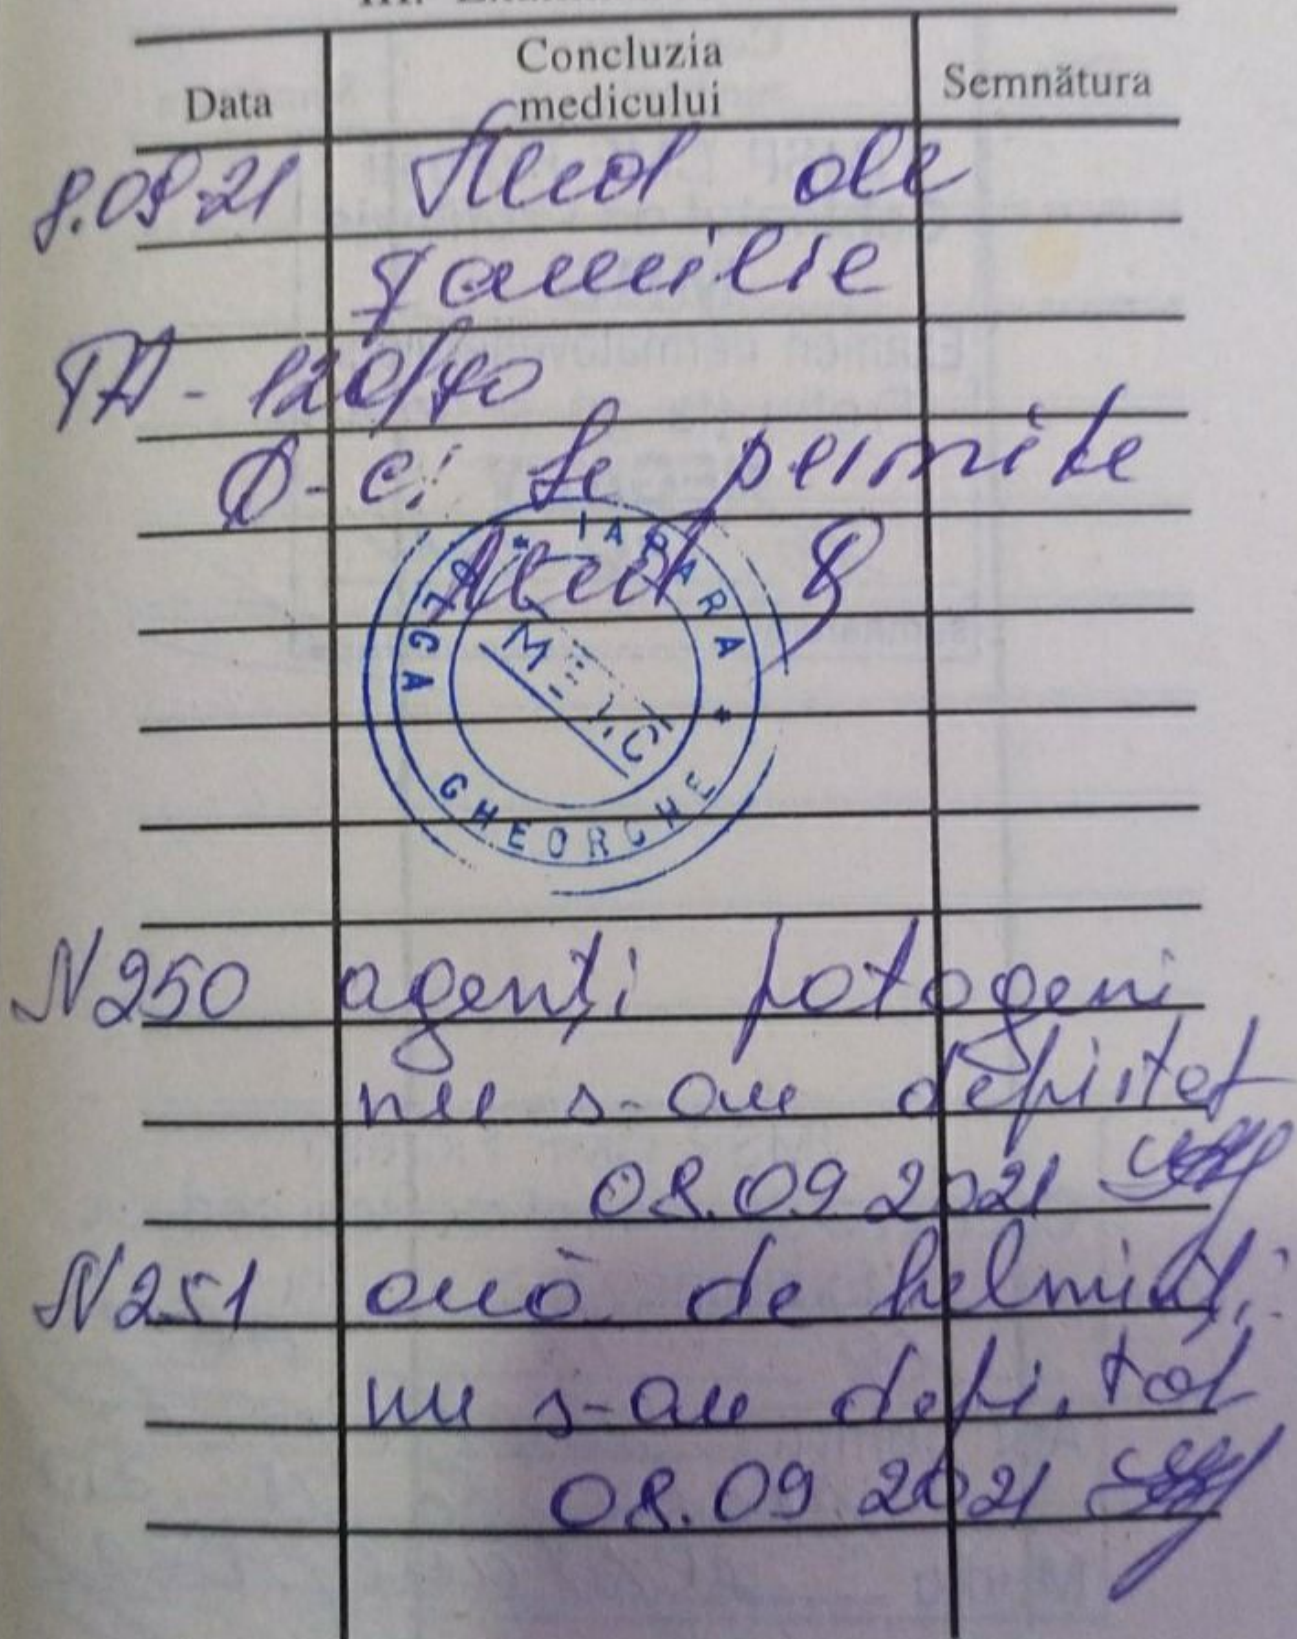 Data
Concluzia
medicului
Semnătura
8.09.21 Med de
familie
TA - 120/70
D-c: Se permite
Med
IAPARA
GHEORGHE
MEDIC
N250 agenți patogeni
nu s-au depistat
08.09 2021
N251 ouă de helminți
nu s-au depistat
08.09 2021